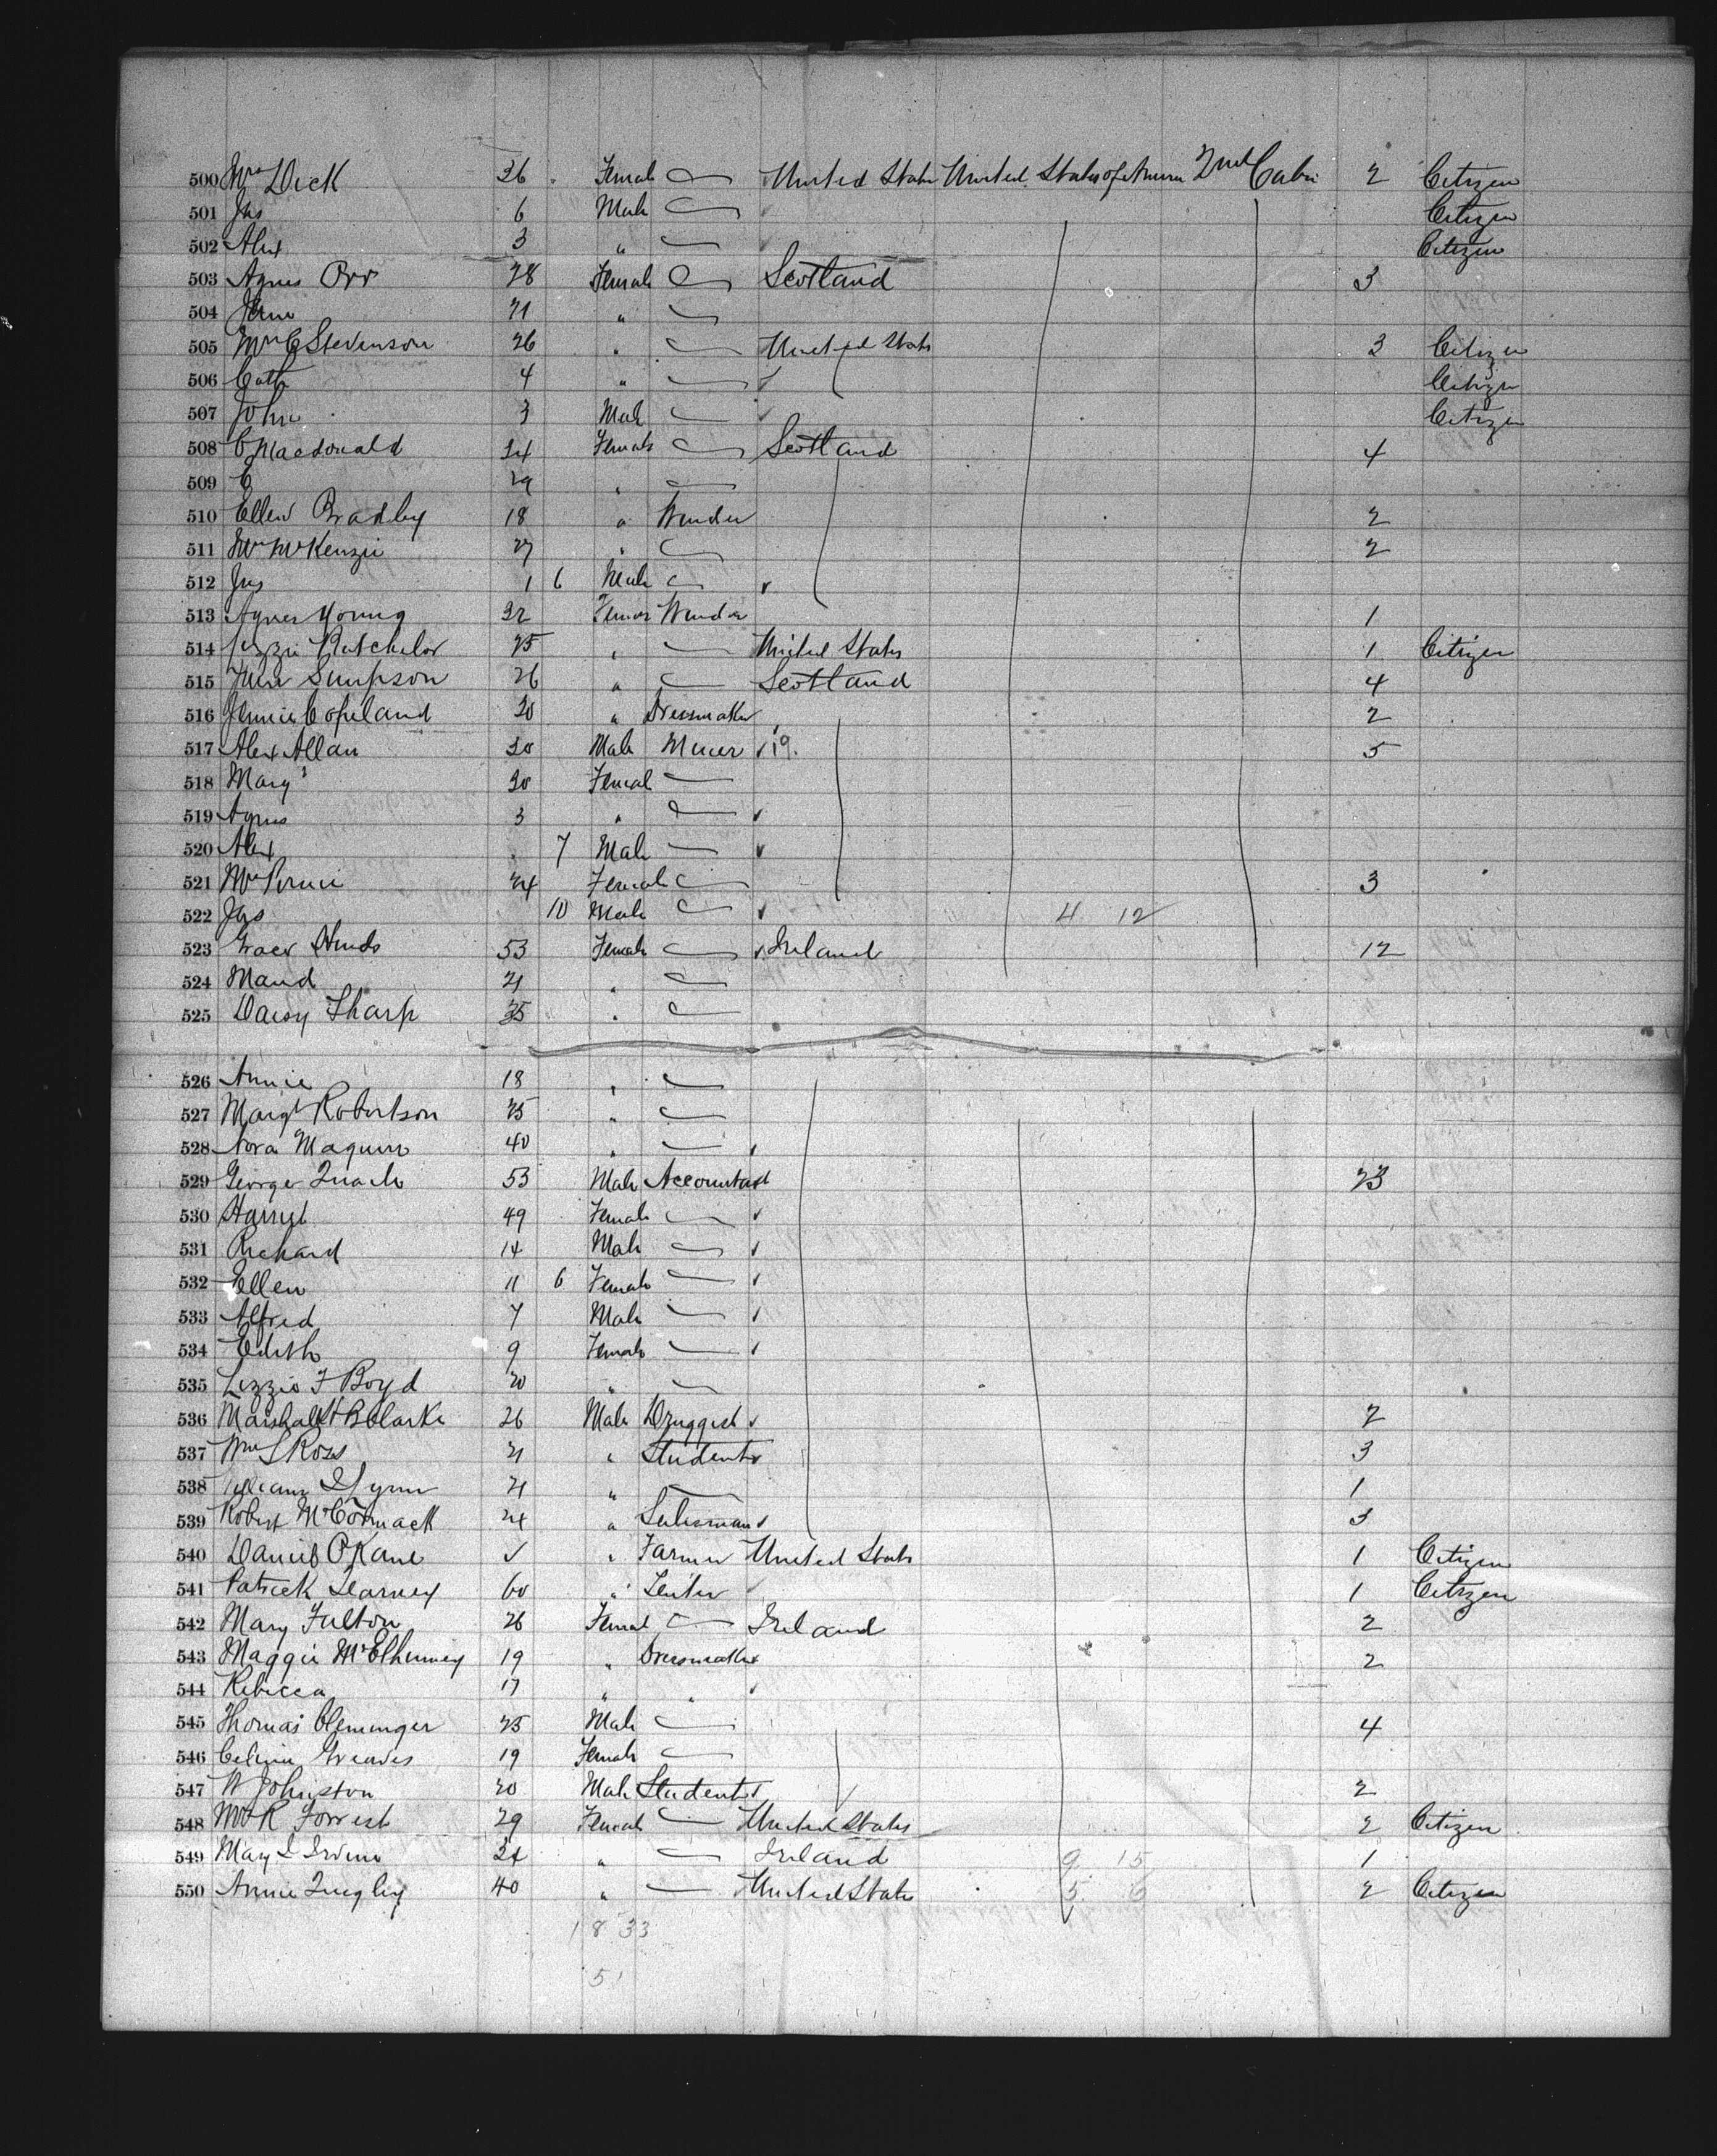 500 Mrs Dick 36 Female — United States United States of America 2nd Cabin 2 Citizen
501 Jas 6 Male — Citizen
502 Alex 3 " — Citizen
503 Agnes Orr 28 Female — Scotland 3
504 Jane 21 " —
505 Mrs C Stevenson 26 " — United States 3 Citizen
506 Cath 4 " — ✓ Citizen
507 John 3 Male — ✓ Citizen
508 C Macdonald 34 Female — Scotland 4
509 C 29 " —
510 Ellen Bradley 18 " Winder 2
511 Mrs McKenzie 27 " — 2
512 Jas 1 6 Male — ✓
513 Agnes Young 32 Female Winder 1
514 Lizzie Batchelor 25 " — United States 1 Citizen
515 Jane Simpson 26 " — Scotland 4
516 Jennie Copeland 30 " Dressmaker 2
517 Alex Allan 30 Male Miner ✓ 19. 5
518 Mary 30 Female —
519 Agnes 3 " — ✓
520 Alex 7 Male — ✓
521 Mrs 24 Female — 3
522 Jas 10 Male — ✓ 4 12
523 Grace Hinds 53 Female — ✓ Ireland 12
524 Maud 21 " —
525 Daisy Tharp 35 " —
526 Annie 18 " —
527 Margt Robertson 25 " —
528 Nora Maguire 40 " — ✓
529 George 53 Male Accountant 23
530 Harryt 49 Female — ✓
531 Richard 14 Male — ✓
532 Ellen 11 6 Female — ✓
533 Alfred 7 Male — ✓
534 Edith 9 Female — ✓
535 Lizzie F Boyd 20 " —
536 Marshall H B Clarke 26 Male Druggist ✓ 2
537 Wm S Ross 21 " Student ✓ 3
538 William Flynn 21 " — 1
539 Robert McCormack 24 " Salesman ✓ 3
540 Daniel O'Kane ✓ " Farmer United States 1 Citizen
541 Patrick Kearney 60 " ✓ 1 Citizen
542 Mary Fulton 26 Female — Ireland 2
543 Maggie McElhinney 19 " Dressmaker 2
544 Rebecca 17 " " ✓
545 Thomas Clemenger 25 Male — 4
546 Celina Greaves 19 Female —
547 W Johnston 20 Male Student ✓ 2
548 Mrs R Forrest 29 Female — United States 2 Citizen
549 Mary I Irvine 34 " — Ireland 9 15 1
550 Annie Quigley 40 " — United States 5 6 2 Citizen
18 33
51